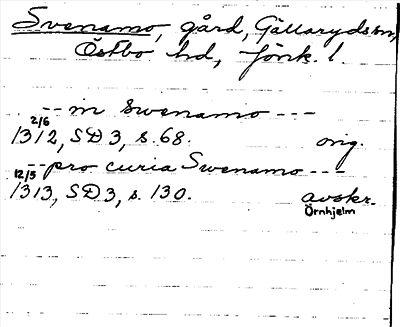 Svenamo, gård, Gällaryds sn,
Östbo hd, Jönk. l.
-- in Swenamo ---
2/6
1312, SD 3, s. 68. orig.
-- pro curia Swenamo ---
12/5
1313, SD 3, s. 130. avskr.
Örnhjelm